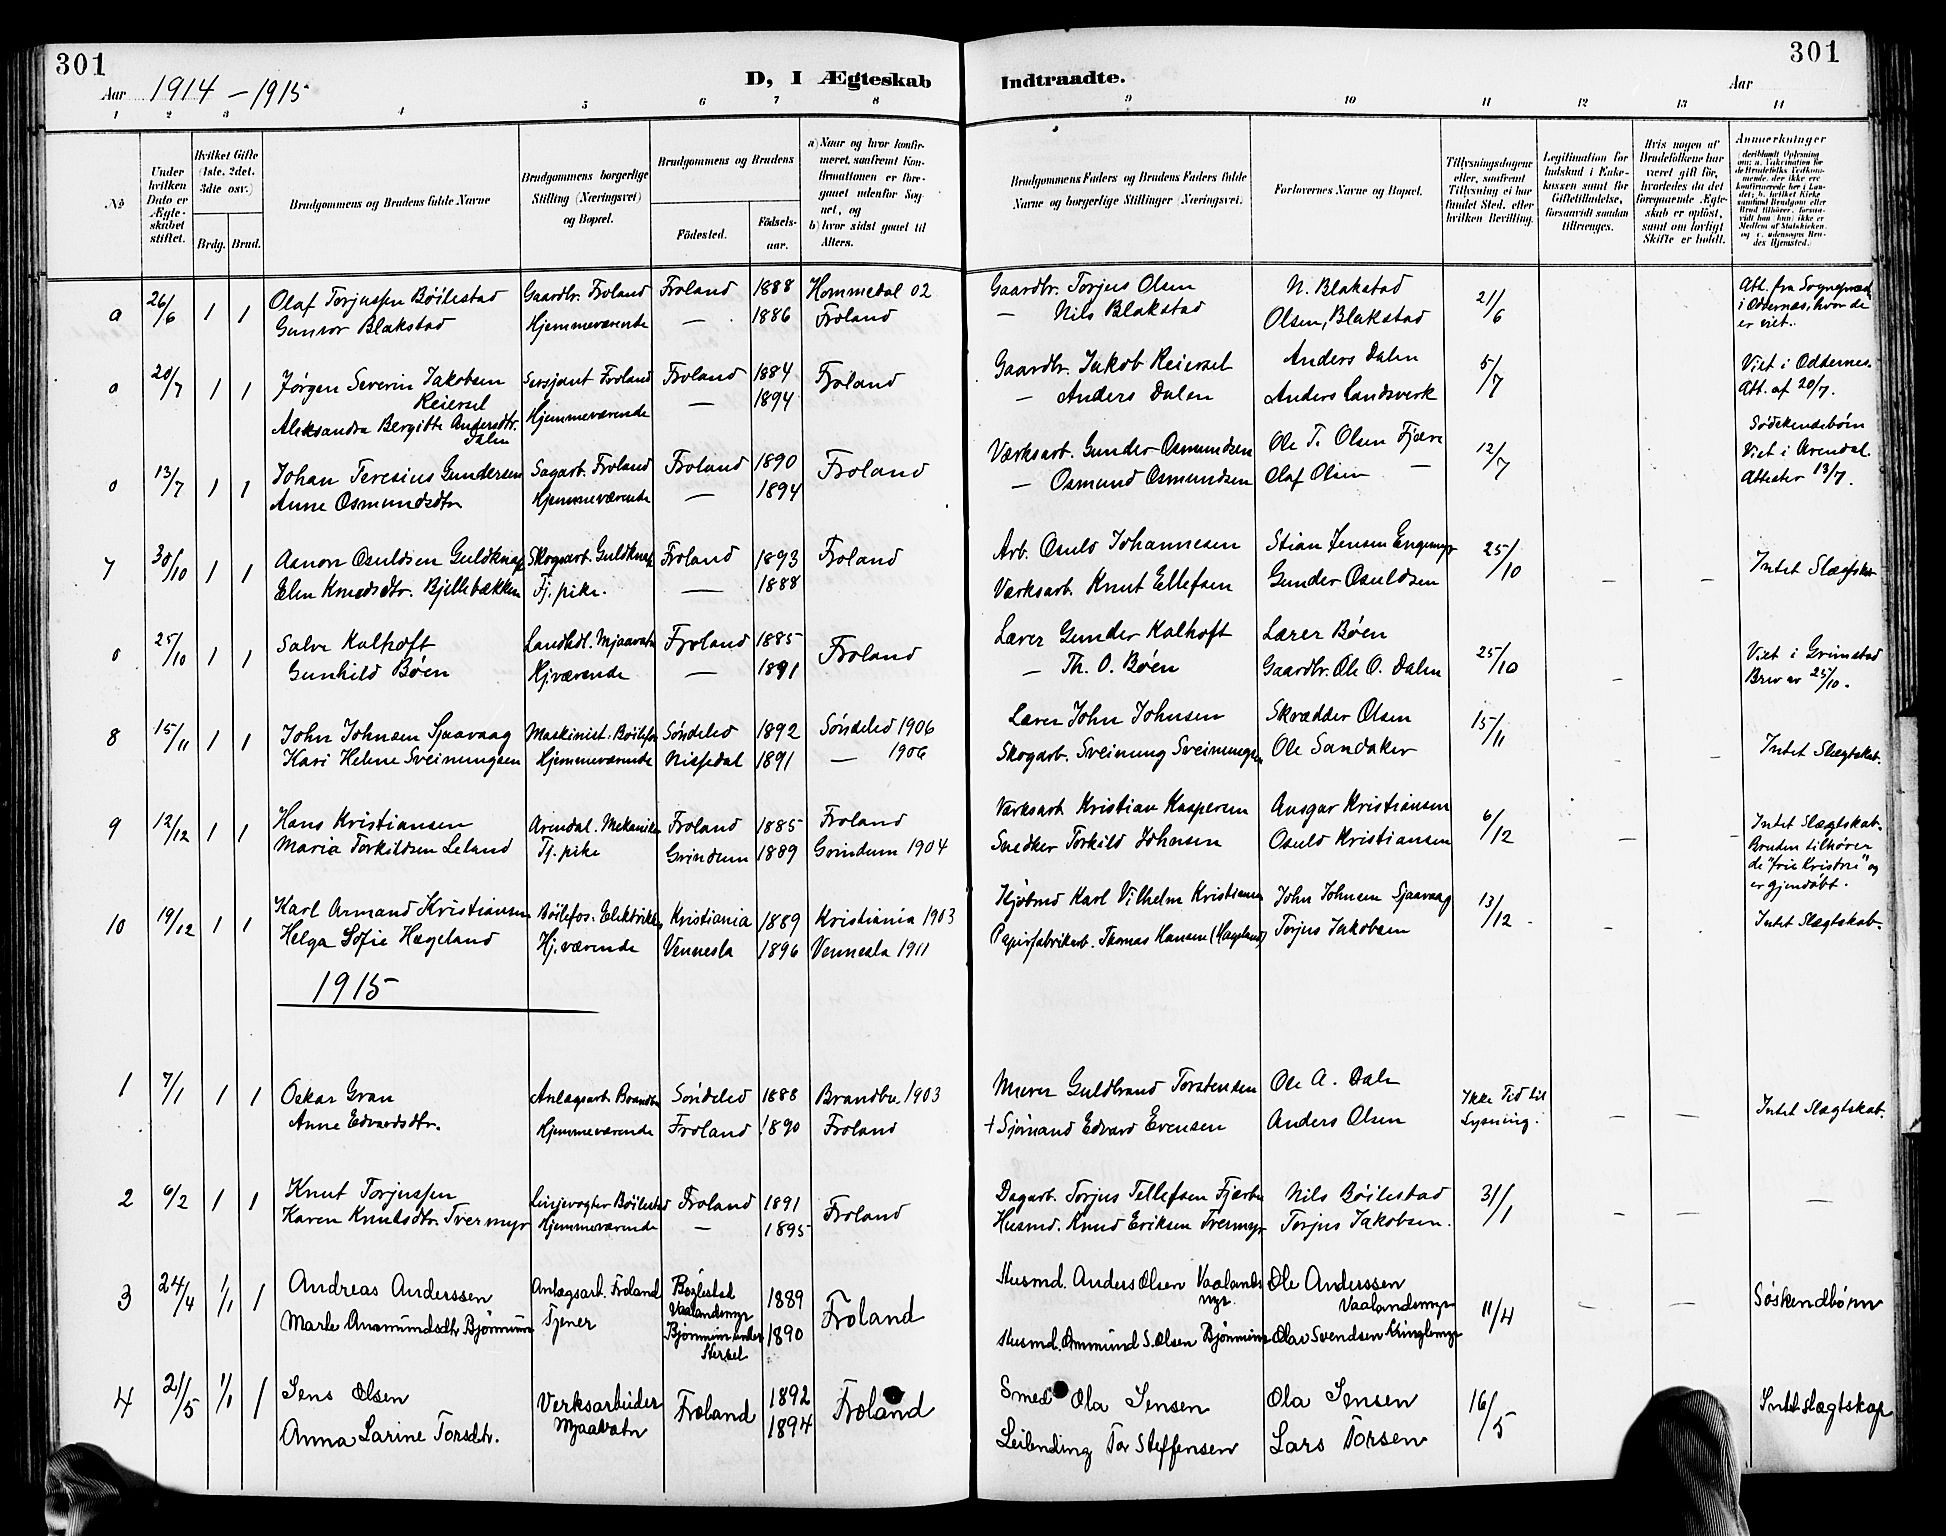 301
301
Aar 1914 - 1915
D, I Ægteskab Indtraadte.
Aar
1 2 3 4 5 6 7 8 9 10 11 12 13 14
No
Under hvilken Dato er Ægteskabet stiftet.
Hvilket Gifte (1ste, 2det, 3die osv.)
Brdg. Brud.
Brudgommens og Brudens fulde Navne
Brudgommens borgerlige Stilling (Næringsvei) og Bopæl.
Brudgommens og Brudens
Fødested.
Fødselsaar.
a) Naar og hvor konfirmeret, saafremt Konfirmationen er foregaaet udenfor Sognet, og
b) hvor sidst gaaet til Alters.
Brudgommens Faders og Brudens Faders fulde Navne og borgerlige Stillinger (Næringsvei.
Forlovernes Navne og Bopæl.
Tillysningsdagene eller, saafremt Tillysning ei har fundet Sted, efter hvilken Bevilling.
Legitimation for Indskud i Enkekassen samt for Giftetilladelse, forsaavidt saadan tiltrænges.
Hvis nogen af Brudefolkene har været gift før, hvorledes da det foregaaende Ægteskab er opløst, samt om lovligt Skifte er holdt.
Anmerkninger
0 26/6 1 1 Olaf Torjussen Böilestad Gaardbr. Froland Froland 1888 Hommedal 02 Gaardbr. Torjus Olsen N. Blakstad 21/6 Att. fra Sogneprest
Gunvor Blakstad Hjemmeværende — 1886 Froland — Nils Blakstad Olsen, Blakstad i Oddernes, hvor de
er viet.
0 20/7 1 1 Jørgen Severin Jakobsen Sersjant Froland Froland 1884 Froland Gaardbr. Jakob Reiersel Anders Dalen 5/7 Viet i Oddernes.
Reiersel — 1894 — Anders Dalen Anders Landsverk Att. af 20/7.
Aleksandra Bergitte Andersdtr. Hjemmeværende Södskendebörn
Dalen
0 13/7 1 1 Johan Teresius Gundersen Sagarb. Froland Froland 1890 Froland Værksarb. Gunder Osmundsen Ole T. Olsen Fjære 12/7 Viet i Arendal.
Anne Osmundsdtr Hjemmeværende — 1894 — Osmund Osmundsen Olaf Olsen — Attester 13/7.
7 30/10 1 1 Asmon Osuldsen Guldknap Skogsarb. Guldknap Froland 1893 Froland Arb. Osuld Johannesen Stian Jensen Engemyr 25/10 Intet Slægtskab
Elen Knudsdtr. Bjellebækken Tj. pike. — 1888 Værksarb. Knut Ellefsen Gunder Osuldsen — —
0 25/10 1 1 Salve Kalhoft Landhdl. Mjaavatn Froland 1885 Froland Lærer Gunder Kalhoft Lærer Bøen 25/10 Viet i Grimstad
Gunhild Bøen Hj.værende — 1891 — Th. O. Bøen Gaardbr. Ole O. Dalen — Brev av 25/10.
8 15/11 1 1 John Johnsen Sjaavaag Maskinist. Böilefos Søndeled 1892 Søndeled 1906 Lærer John Johnsen Skrædder Olsen 15/11 Intet Slægtskab.
Kari Helene Sveinungsen Hjemmeværende Nissedal 1891 — 1906 Skogarb. Sveinung Sveinungsen Ole Sandaker — —
9 12/12 1 1 Hans Kristiansen Arendal. Mekaniker Froland 1885 Froland Værksarb Kristian Kaspersen Ansgar Kristiansen 6/12 Intet Slægtskab.
Maria Torkildsen Leland Tj. pike Grindum 1889 Grindum 1904 Snedker Torkild Johnsen Osuld Kristiansen — — Bruden tilhører
de "frie Kristne" og
er gjendøbt.
10 19/12 1 1 Karl Armand Kristiansen Böilefos. Elektriker Kristiania 1889 Kristiania 1903 Kjøbmd Karl Vilhelm Kristiansen John Johnsen Sjaavaag 13/12 Intet Slægtskab.
Helga Sofie Hægeland Hj.værende Vennesla 1896 Vennesla 1911 Papirfabrikarb. Thomas Hansen (Hægeland) Torjus Jakobsen
1915
1 7/1 1 1 Oskar Gran Anlagsarb. Brandbu Søndeled 1888 Brandbu. 1903 Murer Guldbrand Torstensen Ole A. Dale Ikke Tid til Intet Slægtskab.
Anne Edvardsdtr. Hjemmeværende Froland 1890 Froland + Sjømand Edvard Evensen Anders Olsen Lysning. — —
2 6/2 1 1 Knut Torjussen Linjevogter Böilestad Froland 1891 Froland Dagarb. Torjus Tellefsen Fjærbu Nils Böilestad 31/1 —
Karen Knutsdtr. Tvermyr Hjemmeværende — 1895 Husmd. Knud Eriksen Tvermyr Torjus Jakobsen. — —
3 24/4 1/1 1 Andreas Anderssen Anlagsarb. Froland Bøylestad Vaalandsmyr 1889 Froland Husmd. Anders Olsen Vaalandsmyr. Ole Anderssen Vaalandsmyr 11/4 — — Søskendbørn
Tjener Bjønnmim under 1890 Husmd. S. Olsen Olav Svendsen
4 21/5 1/1 1 Jens Olsen Verksarbeider Froland 1892 Froland Smed Ola Jensen Ola Jensen 16/5 Intet slægtskap
Anna Larine Torsdtr. Mjaavatn 1894 Leilending Tor Steffensen Lars Torsen